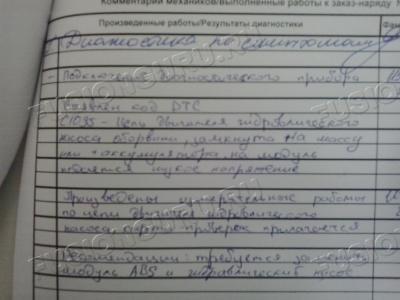 Комментарии механиков/выполненные работы к заказ-наряду №
Произведенные работы/Результаты диагностики
Диагностика по симптомам
- Подключение диагностического прибора
код DTC
C1095 - Цепь двигателя гидравлического
насоса оборвана, замкнута на массу
или + аккумулятора, на модуль
подается низкое напряжение
Произведены измерительные работы
по цепи двигателя гидравлического
насоса, карты проверок прилагаются
Рекомендации: требуется заменить
модуль ABS и гидравлический насос
FUSIONGURU.RU